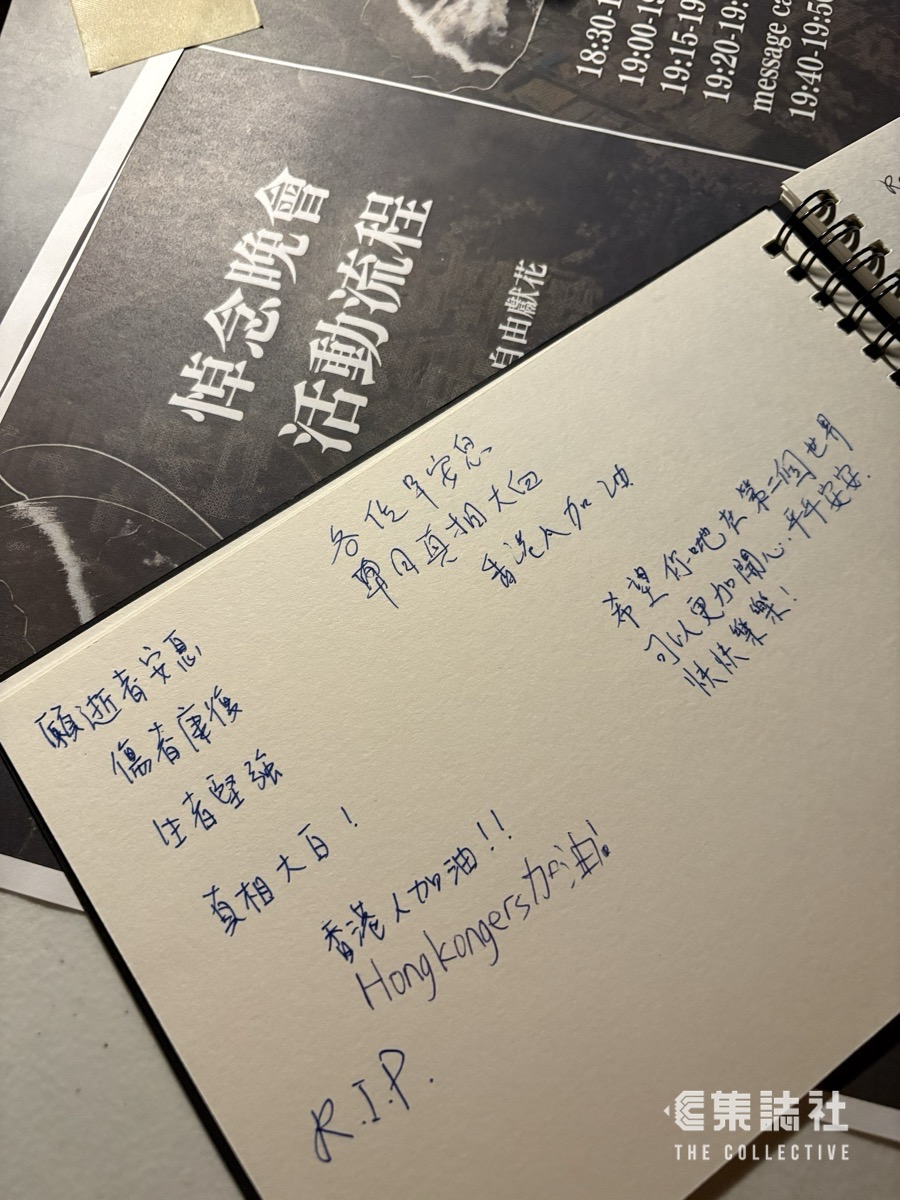 18:30-1
19:00-19
19:15-19
19:20-19:
message ca
19:40-19:50
悼念晚會
活動流程
自由獻花
各位早安息
早日真相大白
香港人加油
希望你哋在第二個世界
可以更加開心.平平安安.
快快樂樂!
願逝者安息
傷者康復
生者堅強
真相大白!
香港人加油!!
Hongkongers加油!
R.I.P.
集誌社
THE COLLECTIVE